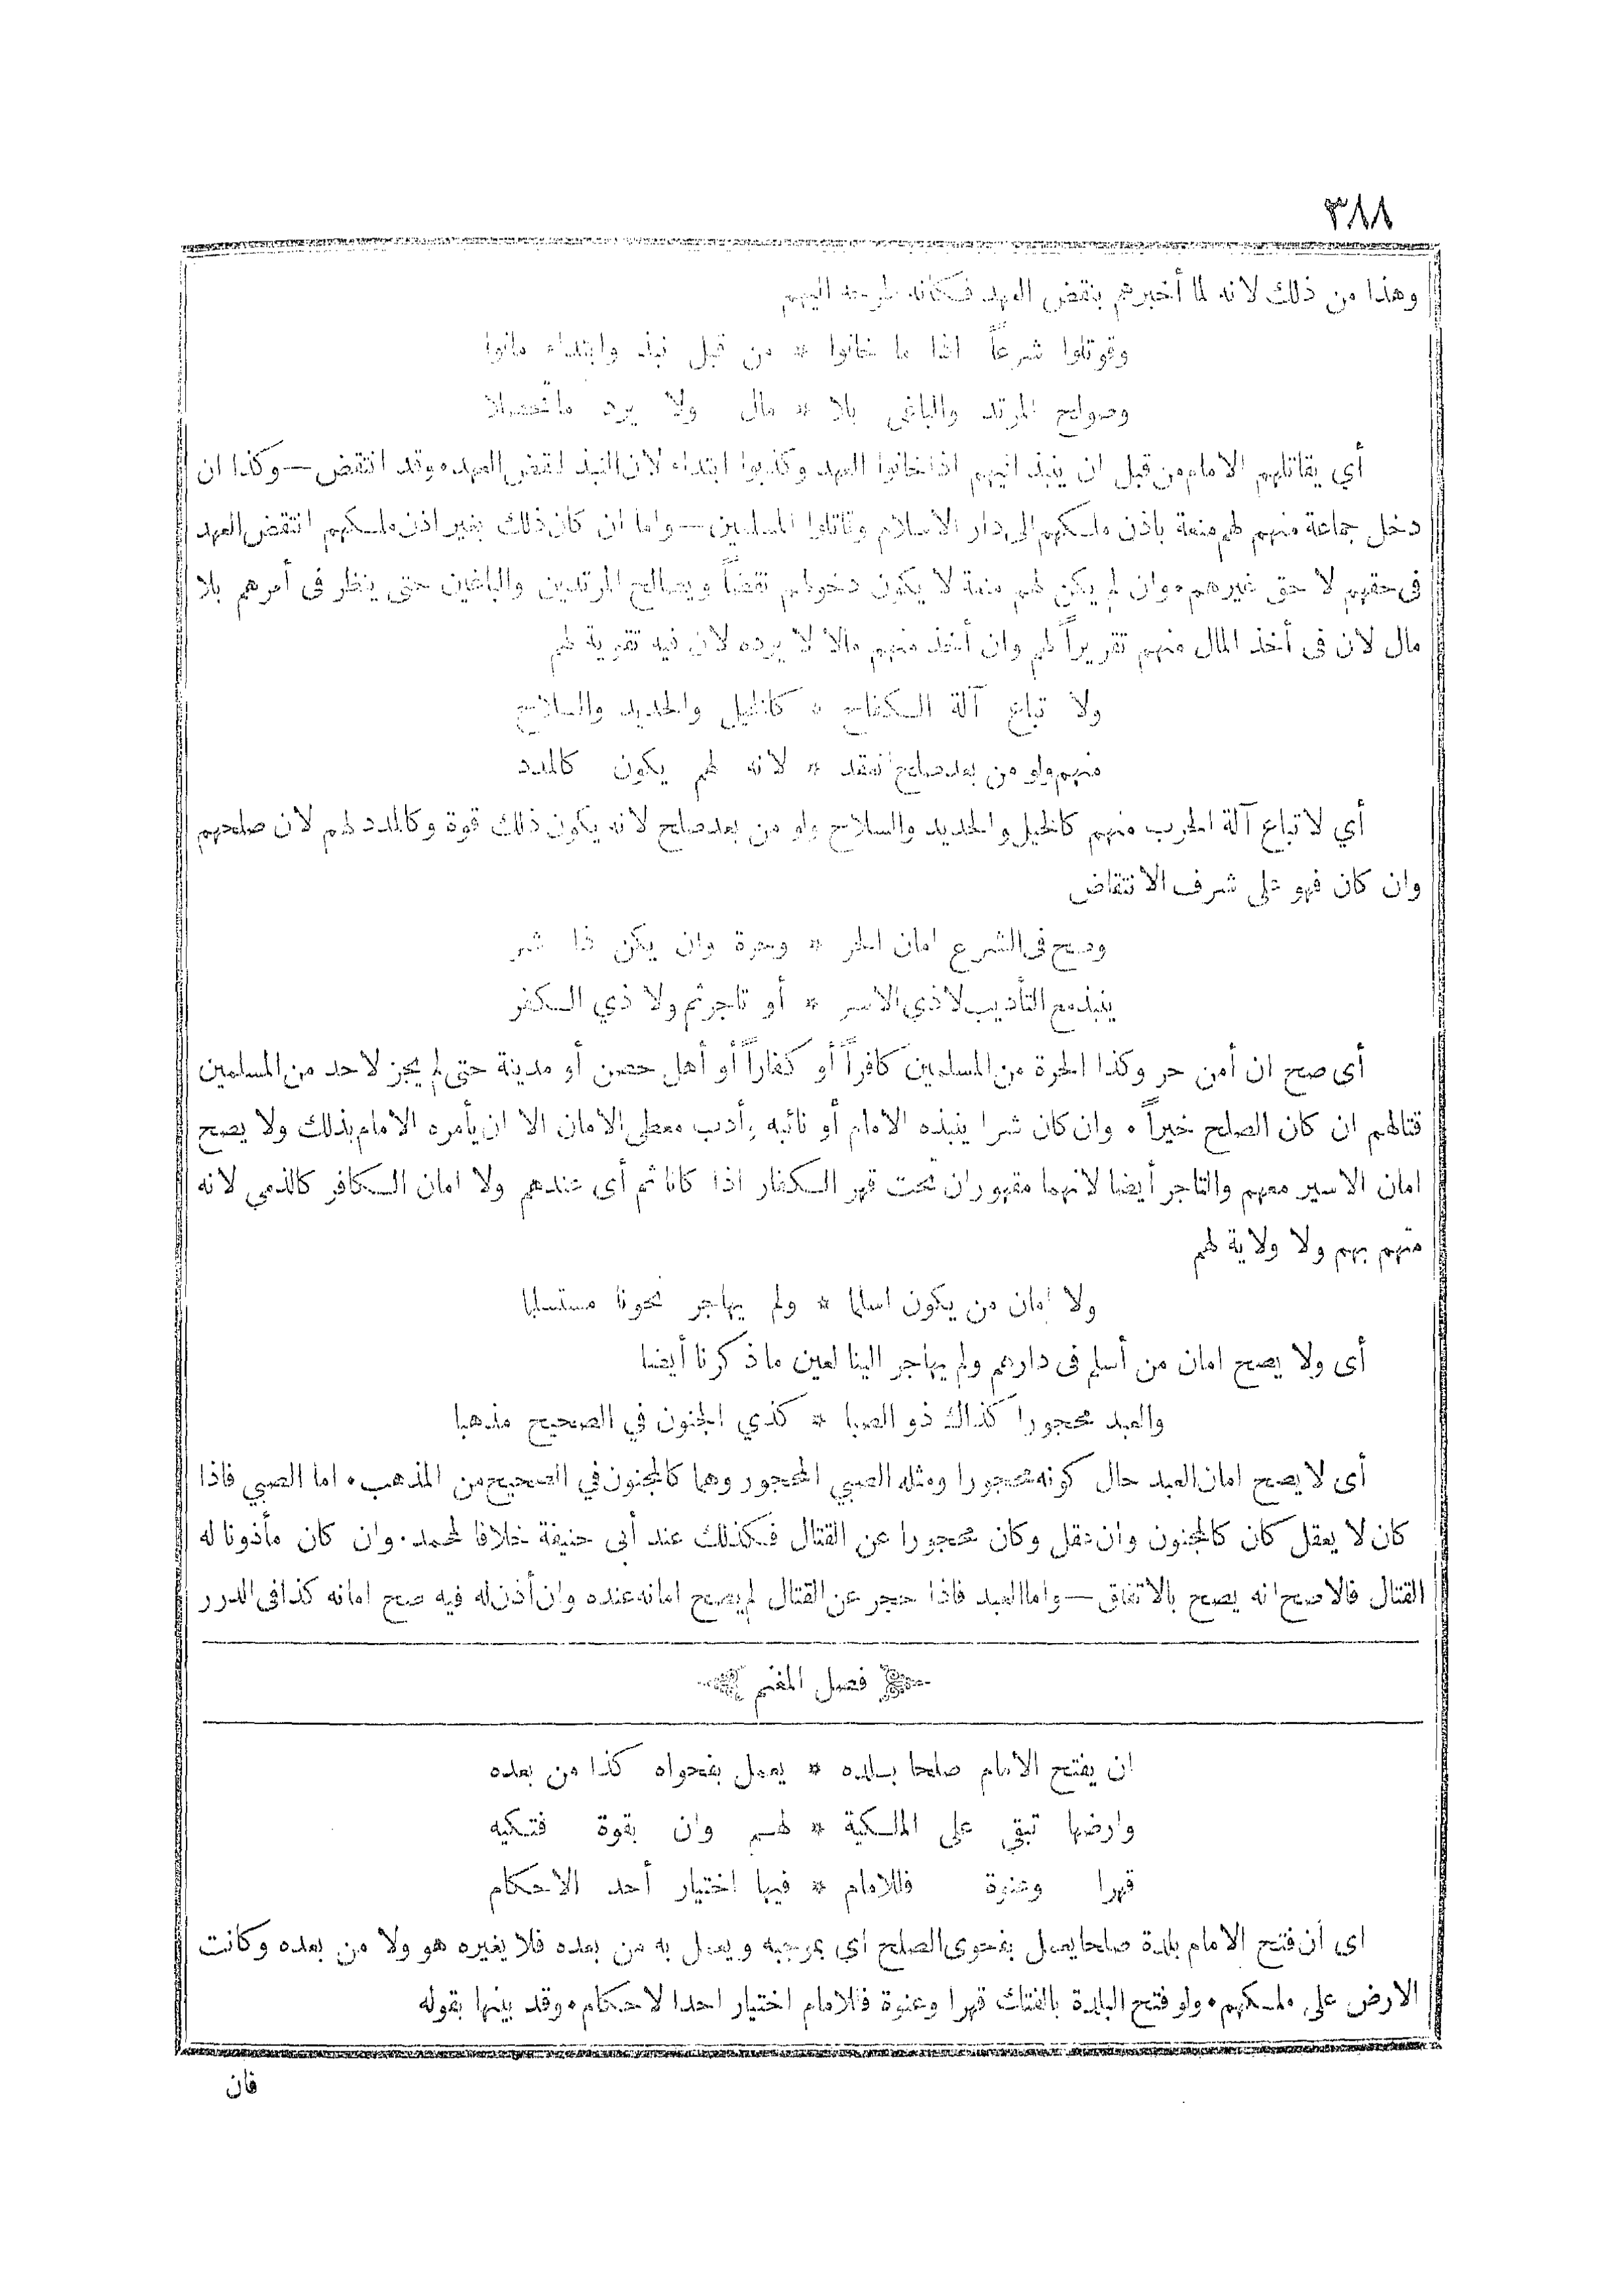 ٣٨٨
وهذا من ذلك لانه لما أخبرهم بنقض العهد فكأنه طرحه اليهم
وقوتلوا شرعاً اذا ما خانوا * من قبل نبذ وابتداء مانوا
وصولح المرتد والباغى بلا * مال ولا يرد ماتحصلا
أي يقاتلهم الامام من قبل ان ينبذ اليهم اذا خانوا العهد وكذبوا ابتداء لان النبذ لنقض العهد ٠ وقد انتقض — وكذا ان
دخل جماعة منهم لهم منعة باذن ملكهم الى دار الاسلام وقاتلوا المسلمين — واما ان كان ذلك بغير اذن ملكهم انتقض العهد
فى حقهم لا حق غيرهم ٠ وان لم يكن لهم منعة لا يكون دخولهم نقضاً ويصالح المرتدين والباغين حتى ينظر فى أمرهم بلا
مال لان فى أخذ المال منهم تقريراً لهم وان أخذ منهم مالا لا يرده لان فيه تقوية لهم
ولا تباع آلة الكفاح * كالخيل والحديد والسلاح
منهم ولو من بعد صلح انعقد * لانه لهم يكون كالمدد
أي لا تباع آلة الحرب منهم كالخيل والحديد والسلاح ولو من بعد صلح لانه يكون ذلك قوة وكالمدد لهم لان صلحهم
وان كان فهو على شرف الانتقاض
وصح فى الشرع امان الحر * وحرة وان يكن ذا شر
ينبذ مع التأديب لا ذي الاسر * أو تاجر ثم ولا ذي الكفر
أى صح ان أمن حر وكذا الحرة من المسلمين كافراً أو كفاراً أو أهل حصن أو مدينة حتى لم يجز لاحد من المسلمين
قتالهم ان كان الصلح خيراً ٠ وان كان شرا ينبذه الامام أو نائبه وأدب معطى الامان الا ان يأمره الامام بذلك ولا يصح
امان الاسير معهم والتاجر أيضا لانهما مقهوران تحت قهر الكفار اذا كانا ثم أى عندهم ولا امان الكافر كالذمي لانه
متهم بهم ولا ولاية لهم
ولا امان من يكون اسلما * ولم يهاجر نحونا مستسلما
أى ولا يصح امان من أسلم فى دارهم ولم يهاجر الينا لعين ما ذكرنا أيضا
والعبد محجورا كذاك ذو الصبا * كذي الجنون في الصحيح مذهبا
أى لا يصح امان العبد حال كونه محجورا ومثله الصبي المحجور وهما كالمجنون في الصحيح من المذهب ٠ اما الصبي فاذا
كان لا يعقل كان كالمجنون وان عقل وكان محجورا عن القتال فكذلك عند أبى حنيفة خلافا لمحمد ٠ وان كان مأذونا له
القتال فالاصح انه يصح بالاتفاق — واما العبد فاذا حجر عن القتال لم يصح امانه عنده وان أذن له فيه صح امانه كذا فى الدرر
فصل المغنم
ان يفتح الامام صلحا بلده * يعمل بفحواه كذا من بعده
وارضها تبقى على المالكية * لهم وان بقوة فتكيه
قهرا وعنوة فللامام * فيها اختيار أحد الاحكام
اى أن فتح الامام بلدة صلحا يعمل بفحوى الصلح اي بموجبه ويعمل به من بعده فلا يغيره هو ولا من بعده وكانت
الارض على ملكهم ٠ ولو فتح البلدة بالفتاك قهرا وعنوة فللامام اختيار احدا لاحكام ٠ وقد بينها بقوله
فان